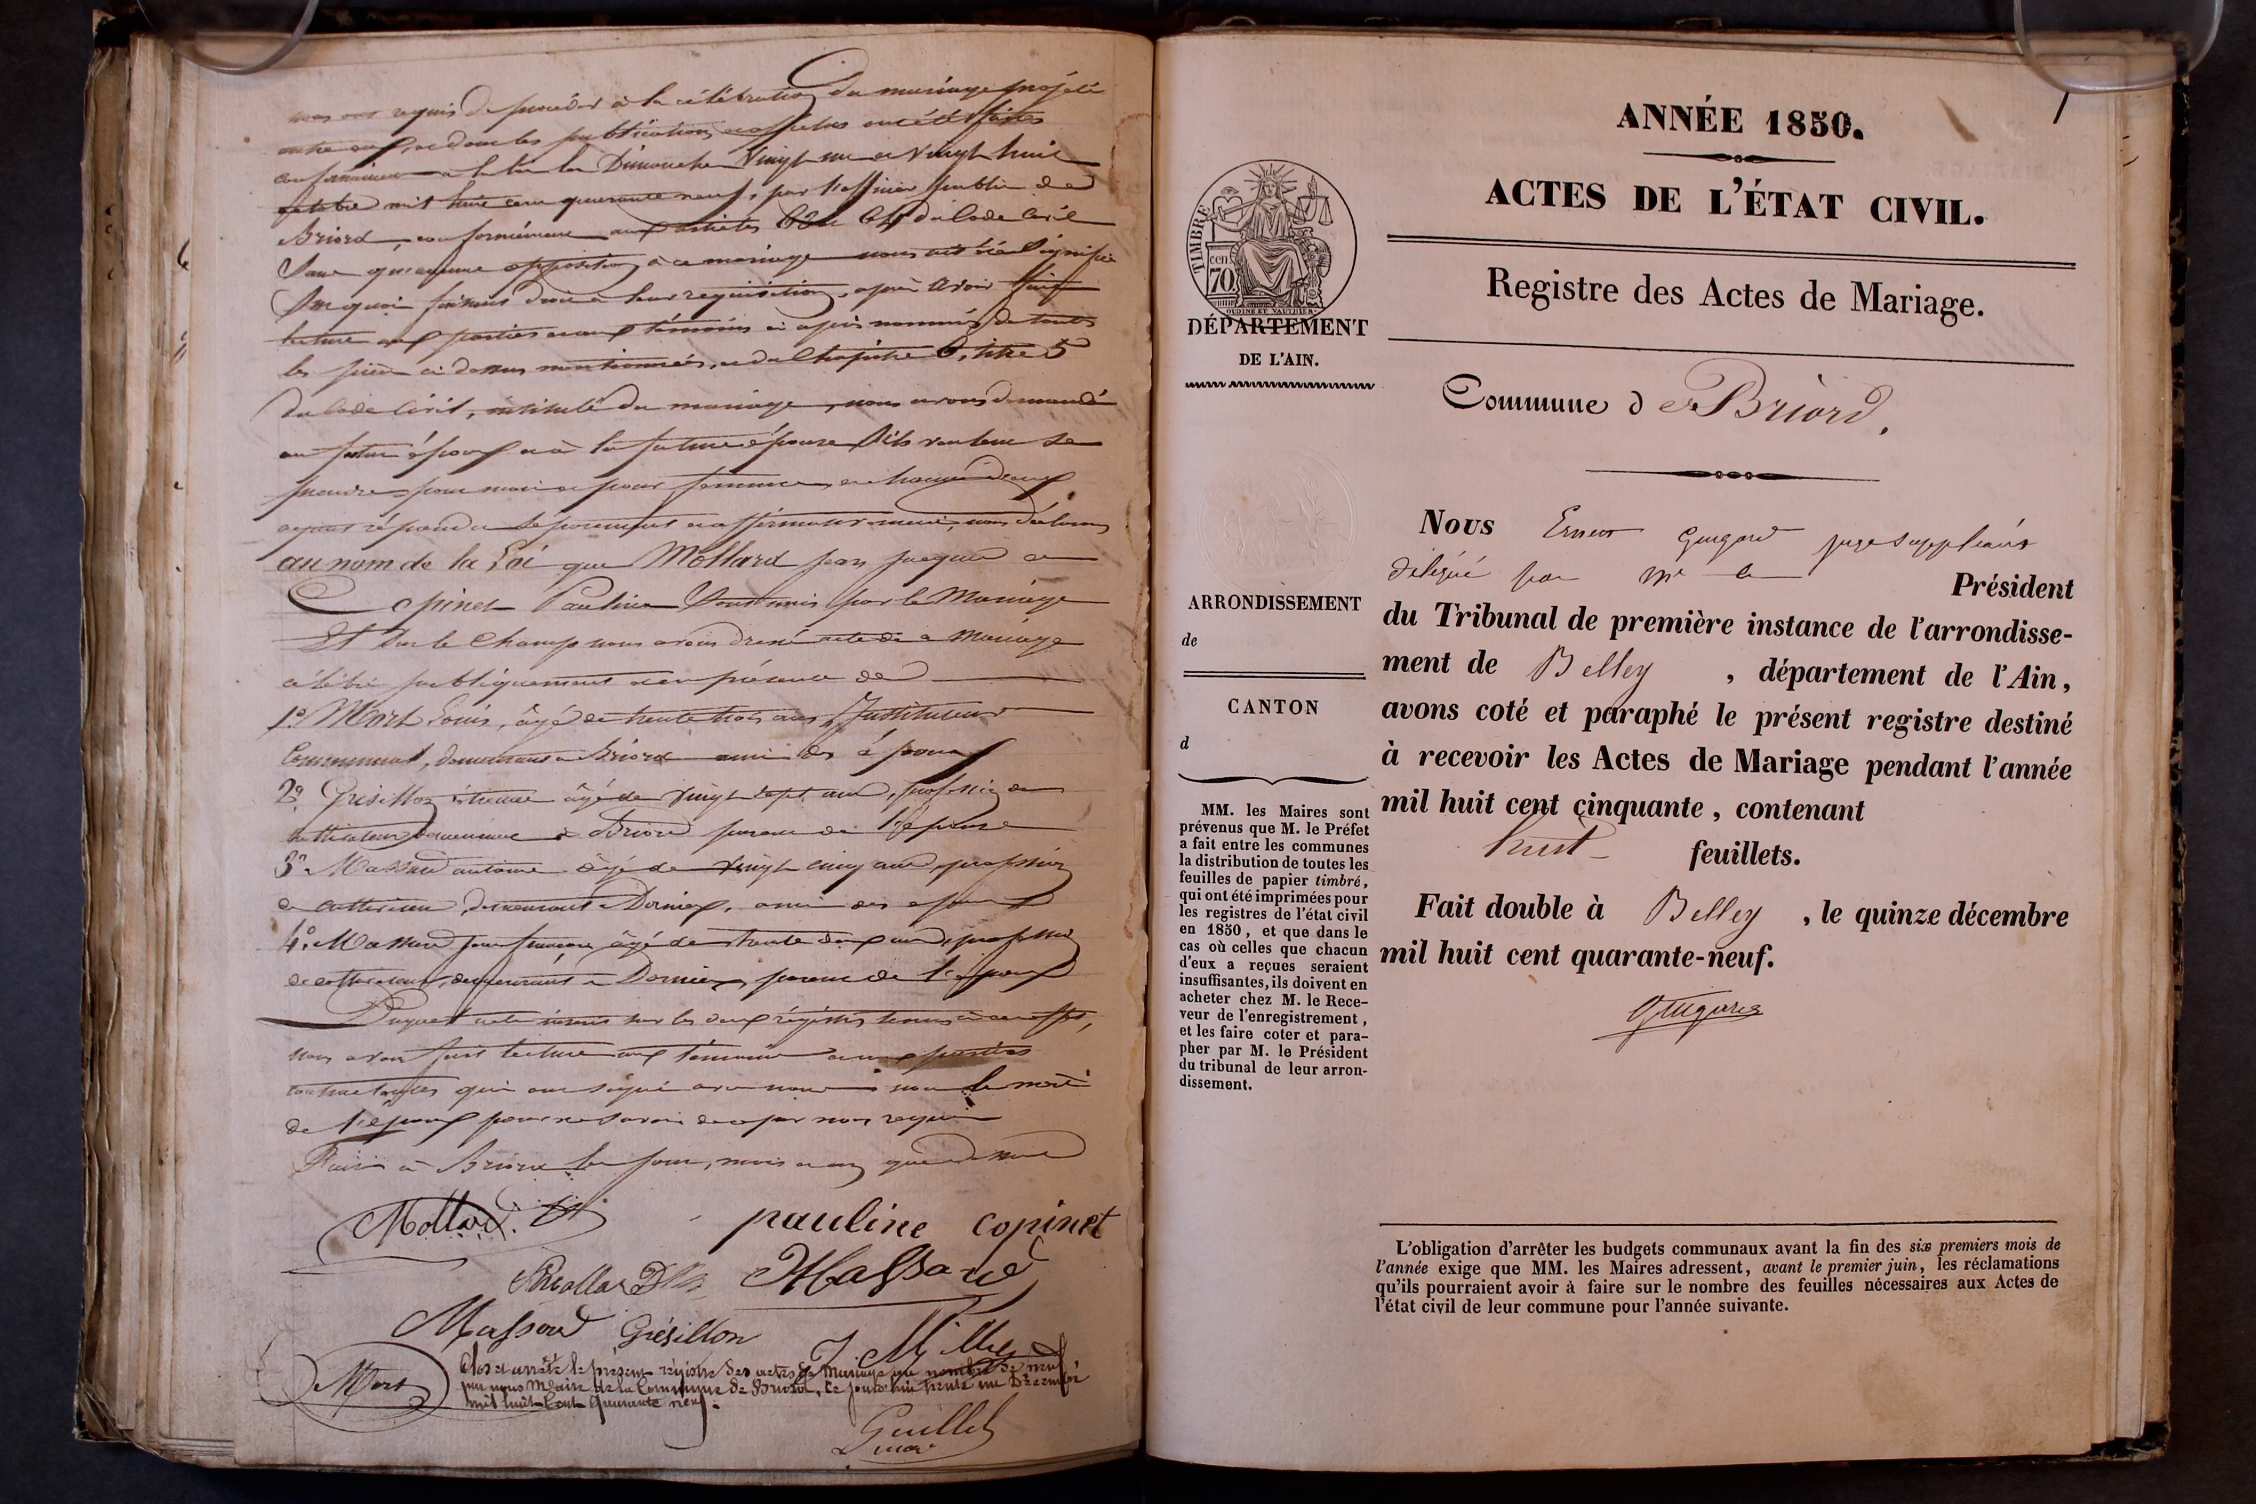 nous ont requis de procéder à la célébration du mariage projeté
entre eux, et dont les publications et affiches ont été faites
conformément à la loi les Dimanches Vingt un et Vingt huit
octobre mil huit cent quarante neuf, par l'officier public de
Briord, conformément aux articles 63 et 64 du Code Civil
Sans qu'aucune opposition à ce mariage nous ait été Signifiée
Sur quoi faisant droit à leur requisition, après avoir fait
lecture aux parties et aux témoins ci après nommés de toutes
les pièces ci dessus mentionnées, et du Chapitre 6, titre 5
du Code Civil, intitulé du mariage, nous avons demandé
au futur époux et à la future épouse S'ils veulent se
prendre pour mari et pour femme, et chacun d'eux
ayant répondu séparément et affirmativement, nous déclarons
au nom de la Loi que Mollard jean jacques et
Copinet Pauline Sont unis par le Mariage
Et Sur le Champ nous avons dressé acte de ce Mariage
célébré publiquement et en présence de
1° Mort Louis, âgé de trente trois ans, Instituteur
Communal, demeurant à Briord ami des époux
2° Grésillon étienne âgé de Vingt sept ans, profession de
cultivateur demeurant à Briord parent de l'épouse
3° Massard antoine âgé de vingt cinq ans, profession
de cultivateur, demeurant à Dornieux, ami des époux
4° Massard jean françois, âgé de trente deux ans, profession
de cultivateur, demeurant à Dornieux, parent de l'époux
Duquel acte inscrit sur les deux régistres tenus à cet effet,
Nous avons fait lecture aux témoins et aux parties
contractantes qui ont signé avec nous non la mère
de l'époux pour ne savoir de ce par nous requis
Fait à Briord les jour, mois et an que dessus
Mollard
pauline copinet
Massard
Massard Grésillon
Mort
Clos et arrêté le présent régistre des actes de Mariage au nombre de neuf
par nous Maire de la Commune de Briord, ce jourd'hui trente un Décembre
mil huit Cent Quarante neuf.
Guillet
maire
1
ANNÉE 1850.
ACTES DE L'ÉTAT CIVIL.
Registre des Actes de Mariage.
TIMBRE
cen
70.
OUDINE ET VAUTHIER
DÉPARTEMENT
DE L'AIN.
Commune de Briord.
ARRONDISSEMENT
de
CANTON
d
MM. les Maires sont
prévenus que M. le Préfet
a fait entre les communes
la distribution de toutes les
feuilles de papier timbré,
qui ont été imprimées pour
les registres de l'état civil
en 1850, et que dans le
cas où celles que chacun
d'eux a reçues seraient
insuffisantes, ils doivent en
acheter chez M. le Rece-
veur de l'enregistrement,
et les faire coter et para-
pher par M. le Président
du tribunal de leur arron-
dissement.
Nous Ernest Guigard juge suppléant
délégué par Mr le Président
du Tribunal de première instance de l'arrondisse-
ment de Belley, département de l'Ain,
avons coté et paraphé le présent registre destiné
à recevoir les Actes de Mariage pendant l'année
mil huit cent cinquante, contenant
huit feuillets.
Fait double à Belley, le quinze décembre
mil huit cent quarante-neuf.
Guigard
L'obligation d'arrêter les budgets communaux avant la fin des six premiers mois de
l'année exige que MM. les Maires adressent, avant le premier juin, les réclamations
qu'ils pourraient avoir à faire sur le nombre des feuilles nécessaires aux Actes de
l'état civil de leur commune pour l'année suivante.